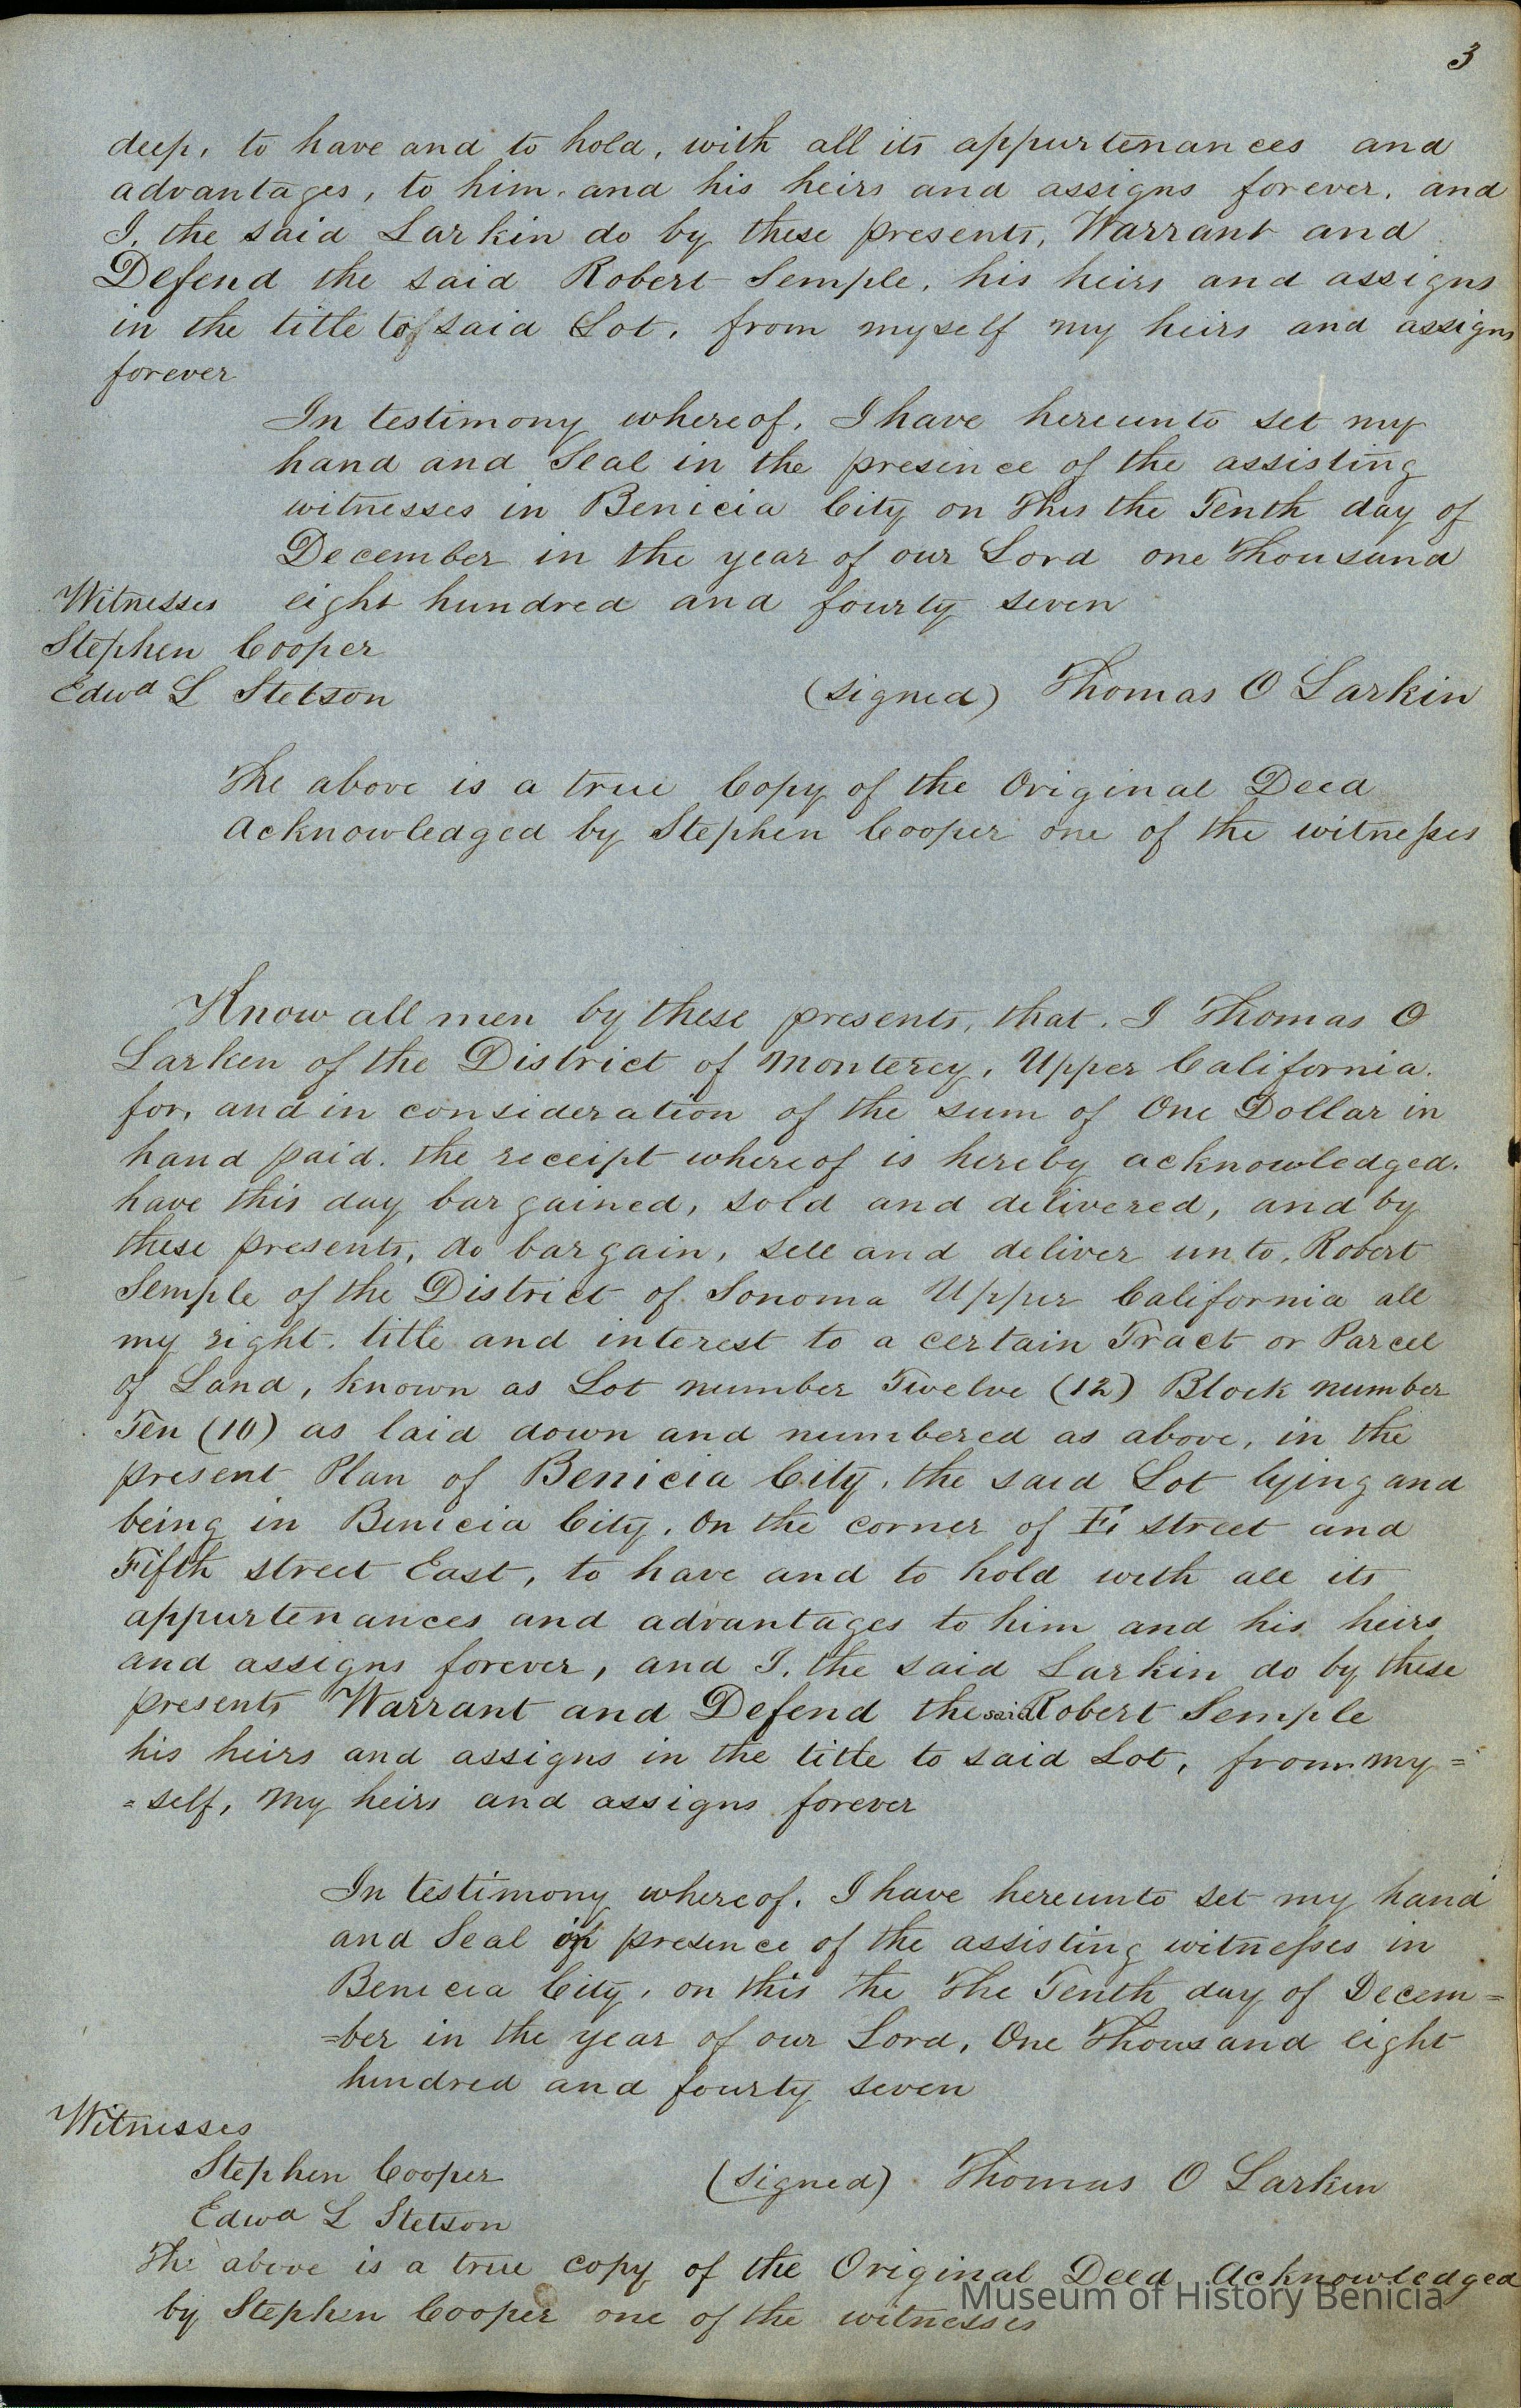 3
deep, to have and to hold, with all its appurtenances and
advantages, to him, and his heirs and assigns forever, and
I, the said Larkin do by these presents, Warrant and
Defend the said Robert Semple, his heirs and assigns
in the title to said Lot, from myself my heirs and assigns
forever
In testimony whereof, I have hereunto set my
hand and Seal in the presence of the assisting
witnesses in Benicia City on this the Tenth day of
December in the year of our Lord one Thousand
Witnesses eight hundred and fourty seven
Stephen Cooper
Edwd L Stetson (signed) Thomas O Larkin
The above is a true Copy of the Original Deed
Acknowledged by Stephen Cooper one of the witnesses
Know all men by these presents, that, I Thomas O
Larken of the District of Monterey, Upper California.
for, and in consideration of the sum of One Dollar in
hand paid. the receipt whereof is hereby acknowledged.
have this day bargained, sold and delivered, and by
these presents, do bargain, sell and deliver unto, Robert
Semple of the District of Sonoma Upper California all
my right. title and interest to a certain Tract or Parcel
of Land, known as Lot number Twelve (12) Block number
Ten (10) as laid down and numbered as above, in the
present Plan of Benicia City, the said Lot lying and
being in Benicia City, On the corner of street and
Fifth street East, to have and to hold with all its
appurtenances and advantages to him and his heirs
and assigns forever, and I, the said Larkin do by these
presents Warrant and Defend the said Robert Semple
his heirs and assigns in the title to said Lot, from my=
=self, my heirs and assigns forever
In testimony whereof, I have hereunto set my hand
and Seal in presence of the assisting witnesses in
Benicia City, on this the The Tenth day of Decem=
=ber in the year of our Lord, One Thousand eight
hundred and fourty seven
Witnesses
Stephen Cooper (signed) Thomas O Larkin
Edwd L Stetson
The above is a true copy of the Original Deed Acknowledged
by Stephen Cooper one of the witnesses
Museum of History Benicia